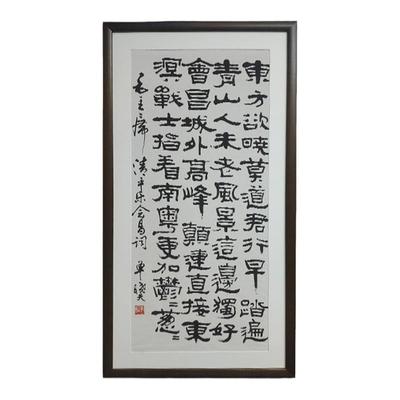 東方欲曉莫道君行早踏遍
青山人未老風景這邊獨好
會昌城外高峰顛連直接東
溟戰士指看南粵更加鬱〻蔥〻
毛主席清平乐会昌词 單曉天